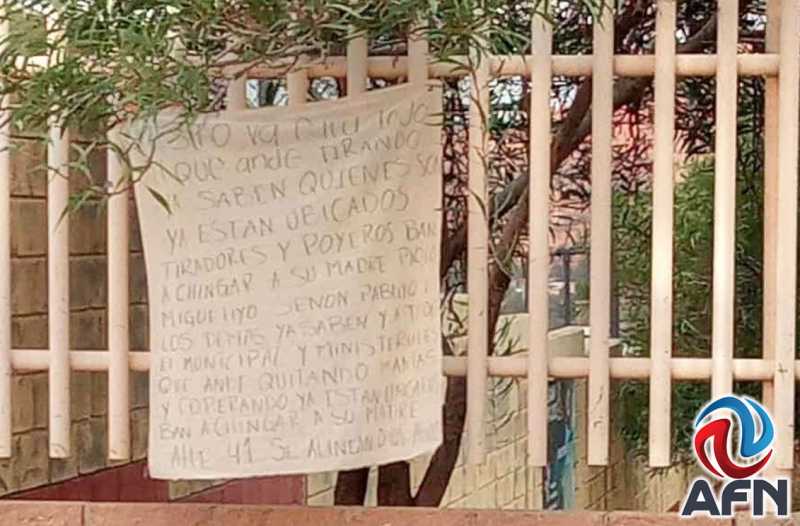 ESTO VA PARA TODO
QUE ANDE TIRANDO
YA SABEN QUIENES SON
YA ESTAN UBICADOS
TIRADORES Y POYEROS BAN
A CHINGAR A SU MADRE
MIGUELIYO SENON PABLITO
LOS DEMAS YA SABEN Y A TODO
EL MUNICIPAL Y MINISTERIALES
QUE ANDE QUITANDO
Y COPERANDO YA ESTAN UBICADOS
BAN A CHINGAR A SU MADRE
SE ALINEAN
AFN